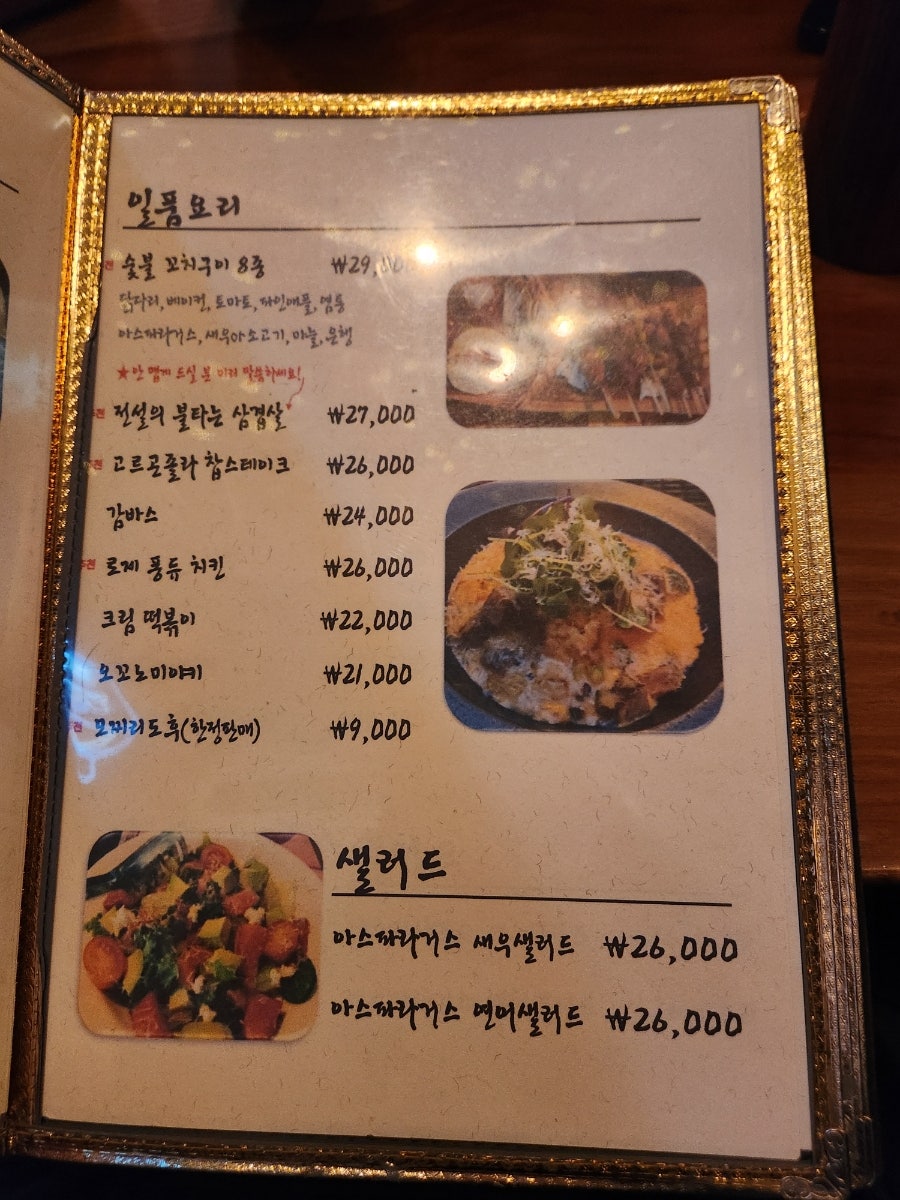 일품요리
추천 숯불 꼬치구이 8종 ₩29,000
닭다리, 베이컨, 토마토, 파인애플, 염통
아스파라거스, 새우 소고기, 마늘, 은행
★안 맵게 드실 분 미리 말씀하세요!
추천 전설의 불타는 삼겹살 ₩27,000
추천 고르곤졸라 찹스테이크 ₩26,000
감바스 ₩24,000
추천 로제 퐁듀 치킨 ₩26,000
크림 떡볶이 ₩22,000
오꼬노미야키 ₩21,000
추천 모찌리도후(한정판매) ₩9,000
샐러드
아스파라거스 새우샐러드 ₩26,000
아스파라거스 연어샐러드 ₩26,000